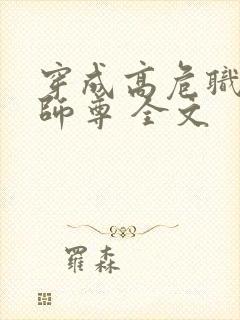 穿成高危職
師尊 全文
羅森